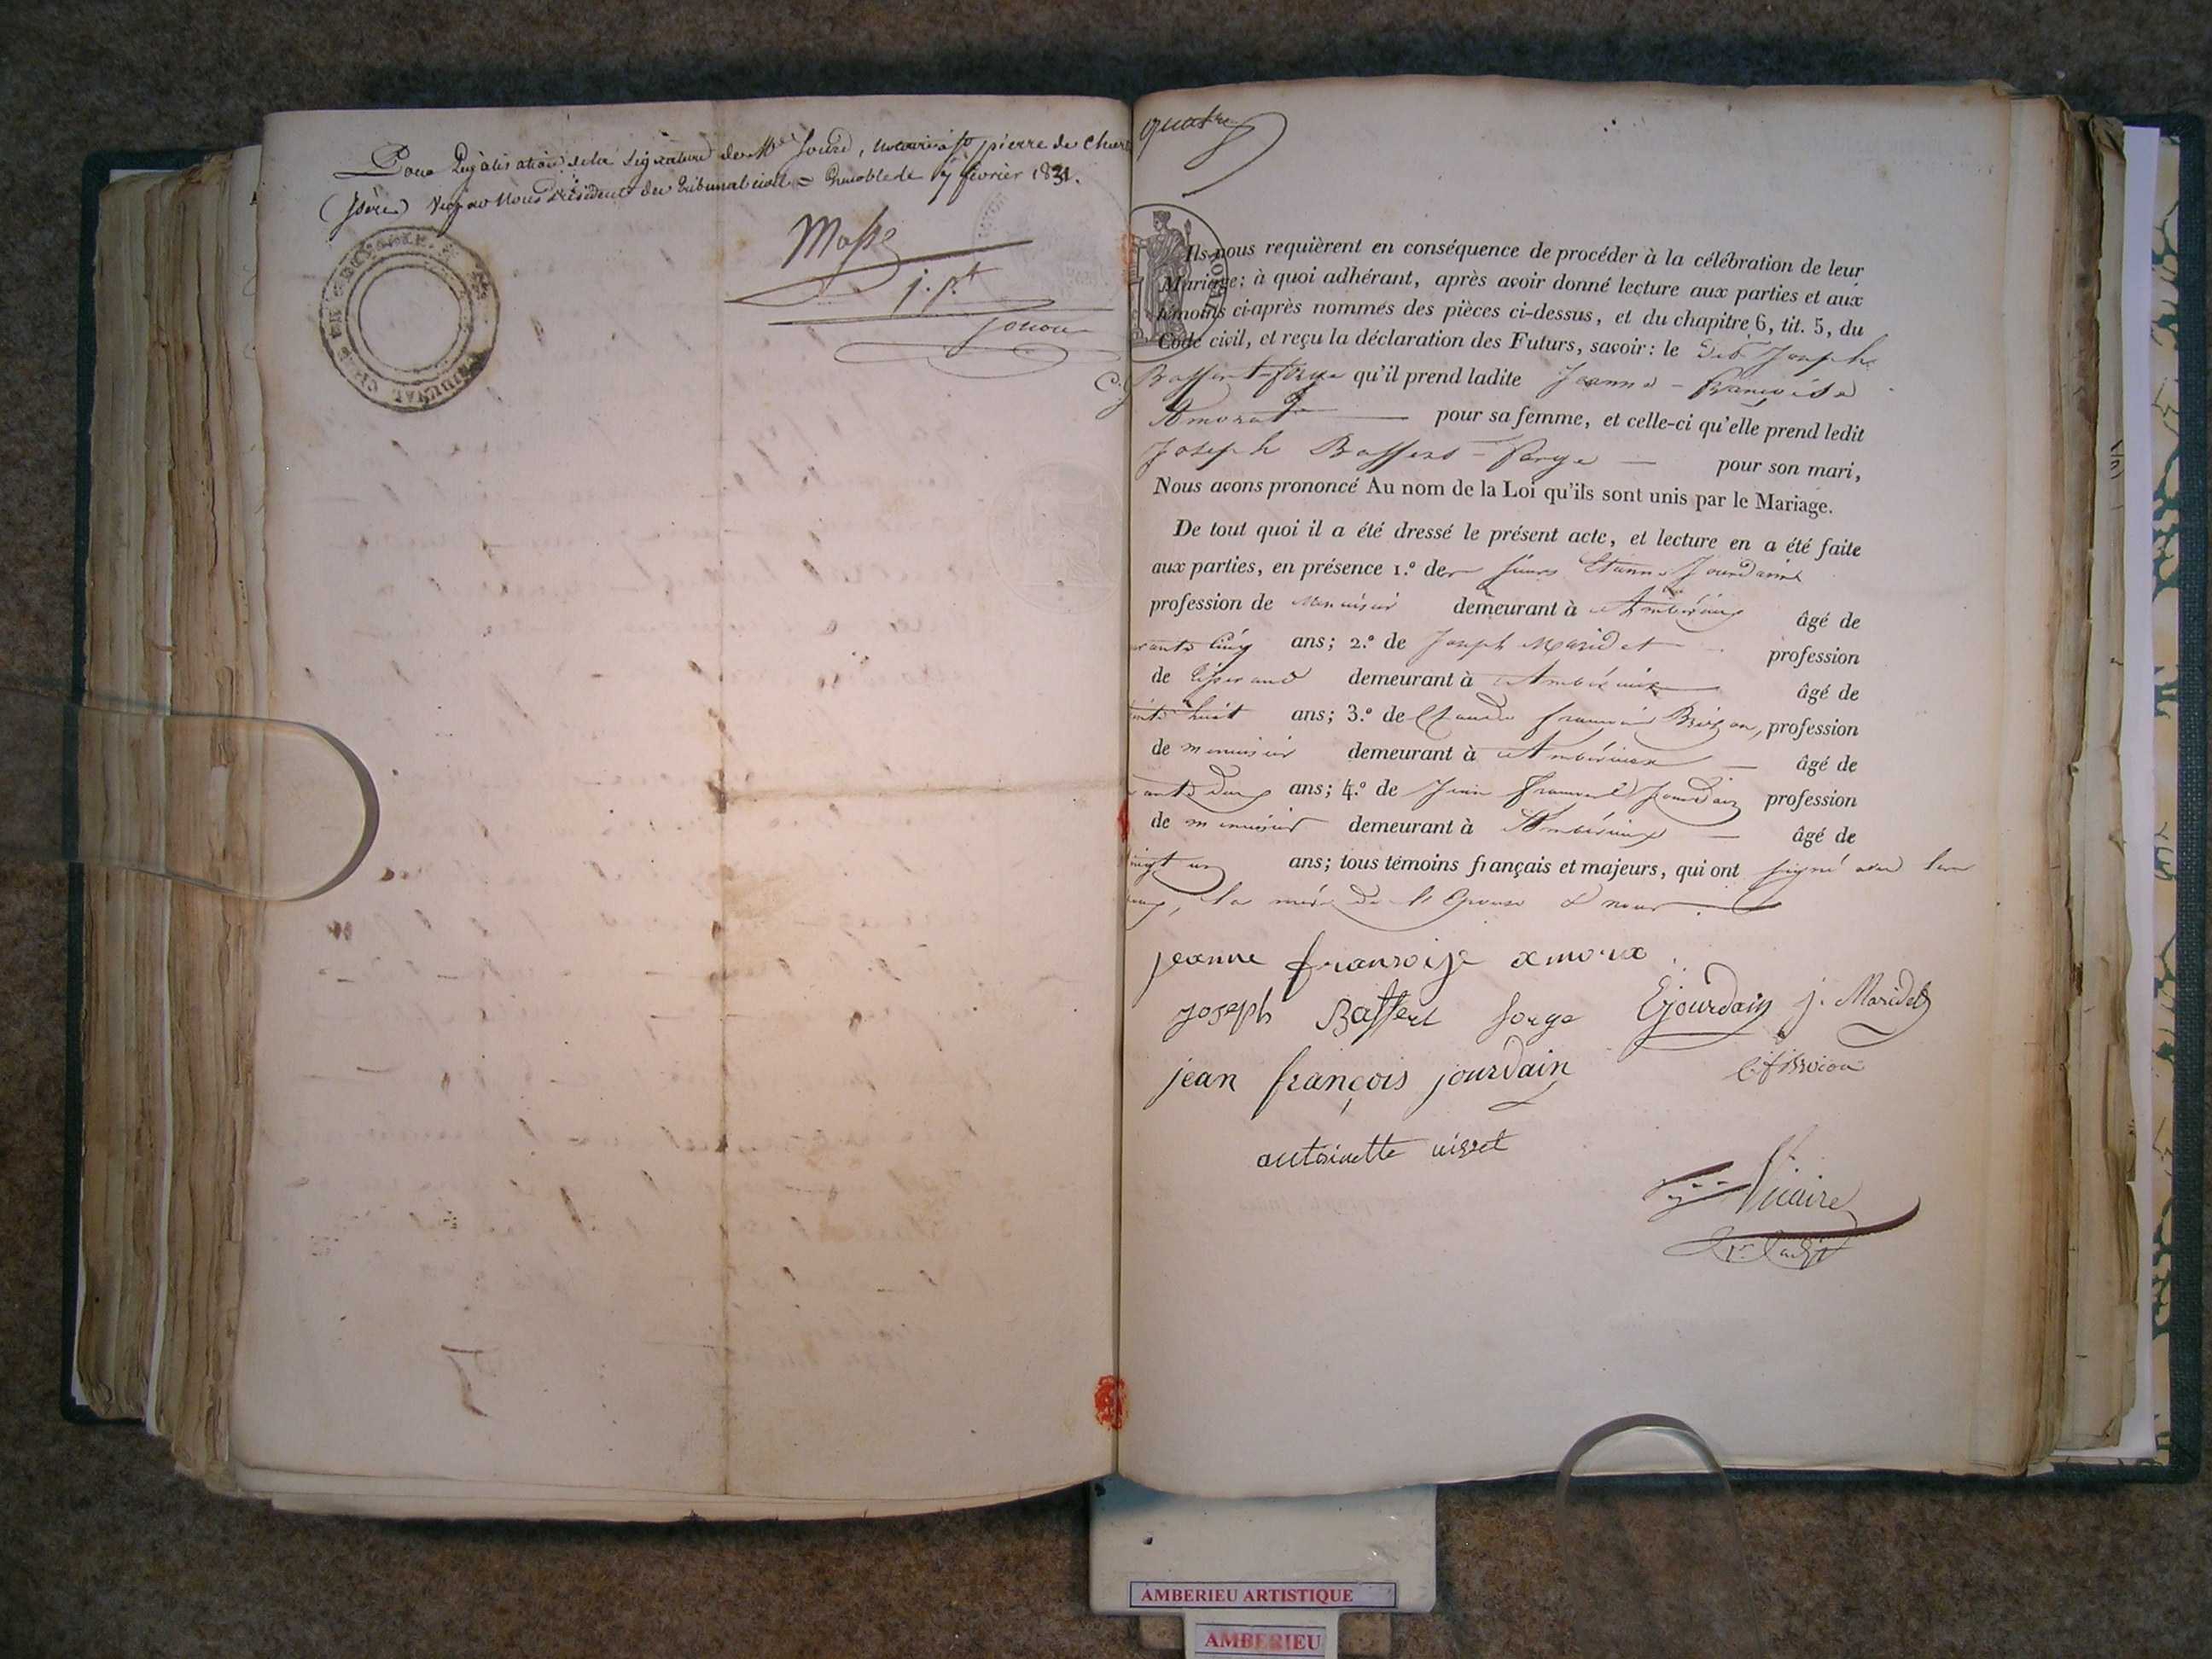 Pour Légalisation de la Signature de Me Jourd, notaire à St pierre de Chart
(Isère) Vu par Nous Président du tribunal civil = Grenoble le 7 février 1831.
TRIBUNAL CIVIL
Masse
j. pt
quatre
Ils nous requièrent en conséquence de procéder à la célébration de leur
Mariage; à quoi adhérant, après avoir donné lecture aux parties et aux
témoins ci-après nommés des pièces ci-dessus, et du chapitre 6, tit. 5, du
Code civil, et reçu la déclaration des Futurs, savoir: le dit Joseph
Baffert-farge qu'il prend ladite Jeanne-françoise
Amora pour sa femme, et celle-ci qu'elle prend ledit
Joseph Baffert-farge — pour son mari,
Nous avons prononcé Au nom de la Loi qu'ils sont unis par le Mariage.
De tout quoi il a été dressé le présent acte, et lecture en a été faite
aux parties, en présence 1.° de Etienne Jourdain
profession de menuisier demeurant à Ambérieux âgé de
ante cinq ans; 2.° de Joseph Maridet profession
de tisserand demeurant à Ambérieux âgé de
huit ans; 3.° de Claude françois profession
de menuisier demeurant à Ambérieux — âgé de
ante deux ans; 4.° de Jean françois Jourdain profession
de menuisier demeurant à Ambérieux — âgé de
vingt un ans; tous témoins français et majeurs, qui ont signé avec les
, la mère de l'Epouse & nous.
jeanne fransoise amora
joseph Baffert forge Ejourdain j. Maridet
jean françois jourdain
antoinette
Vicaire
AMBERIEU ARTISTIQUE
AMBERIEU